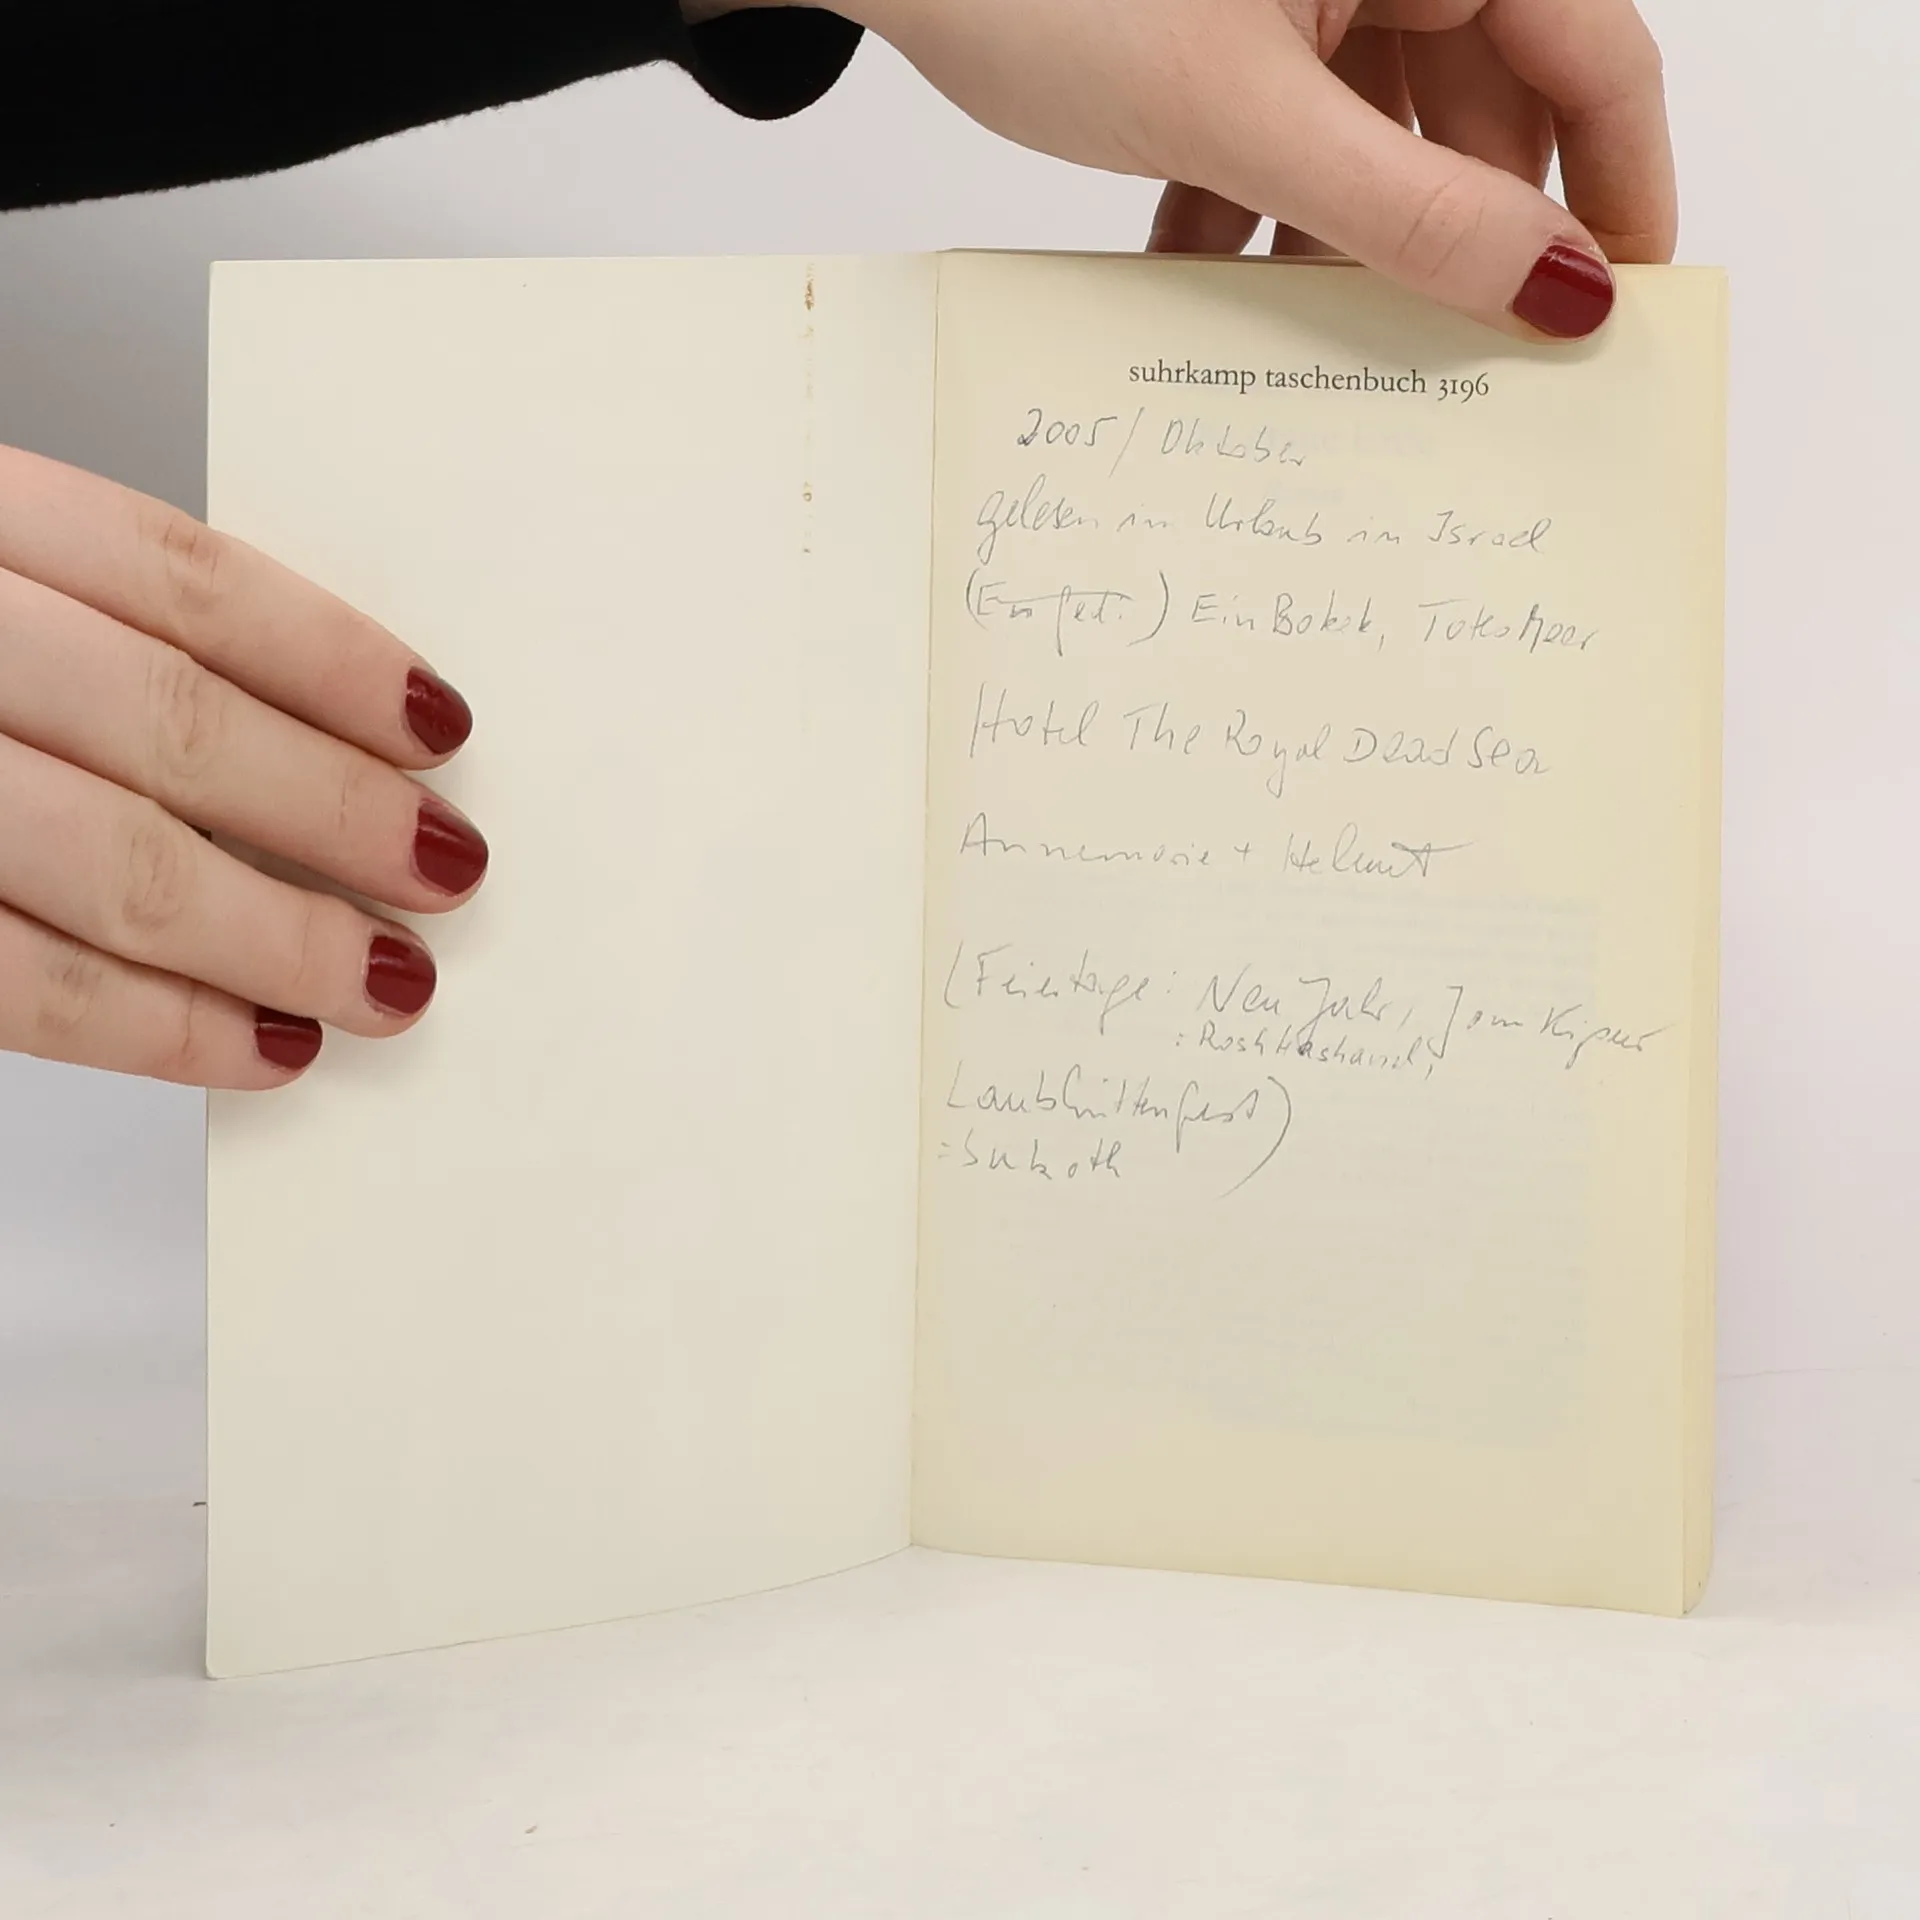 suhrkamp taschenbuch 3196
2005 / Oktober
gelesen in Urlaub in Israel
(En gedi) Ein Bokek, Totes Meer
Hotel The Royal Dead Sea
Annemarie + Helmut
(Feiertage: Neu Jahr, Jom Kipur
: Rosh Hashanah,
Laubhüttenfest)
= Sukoth